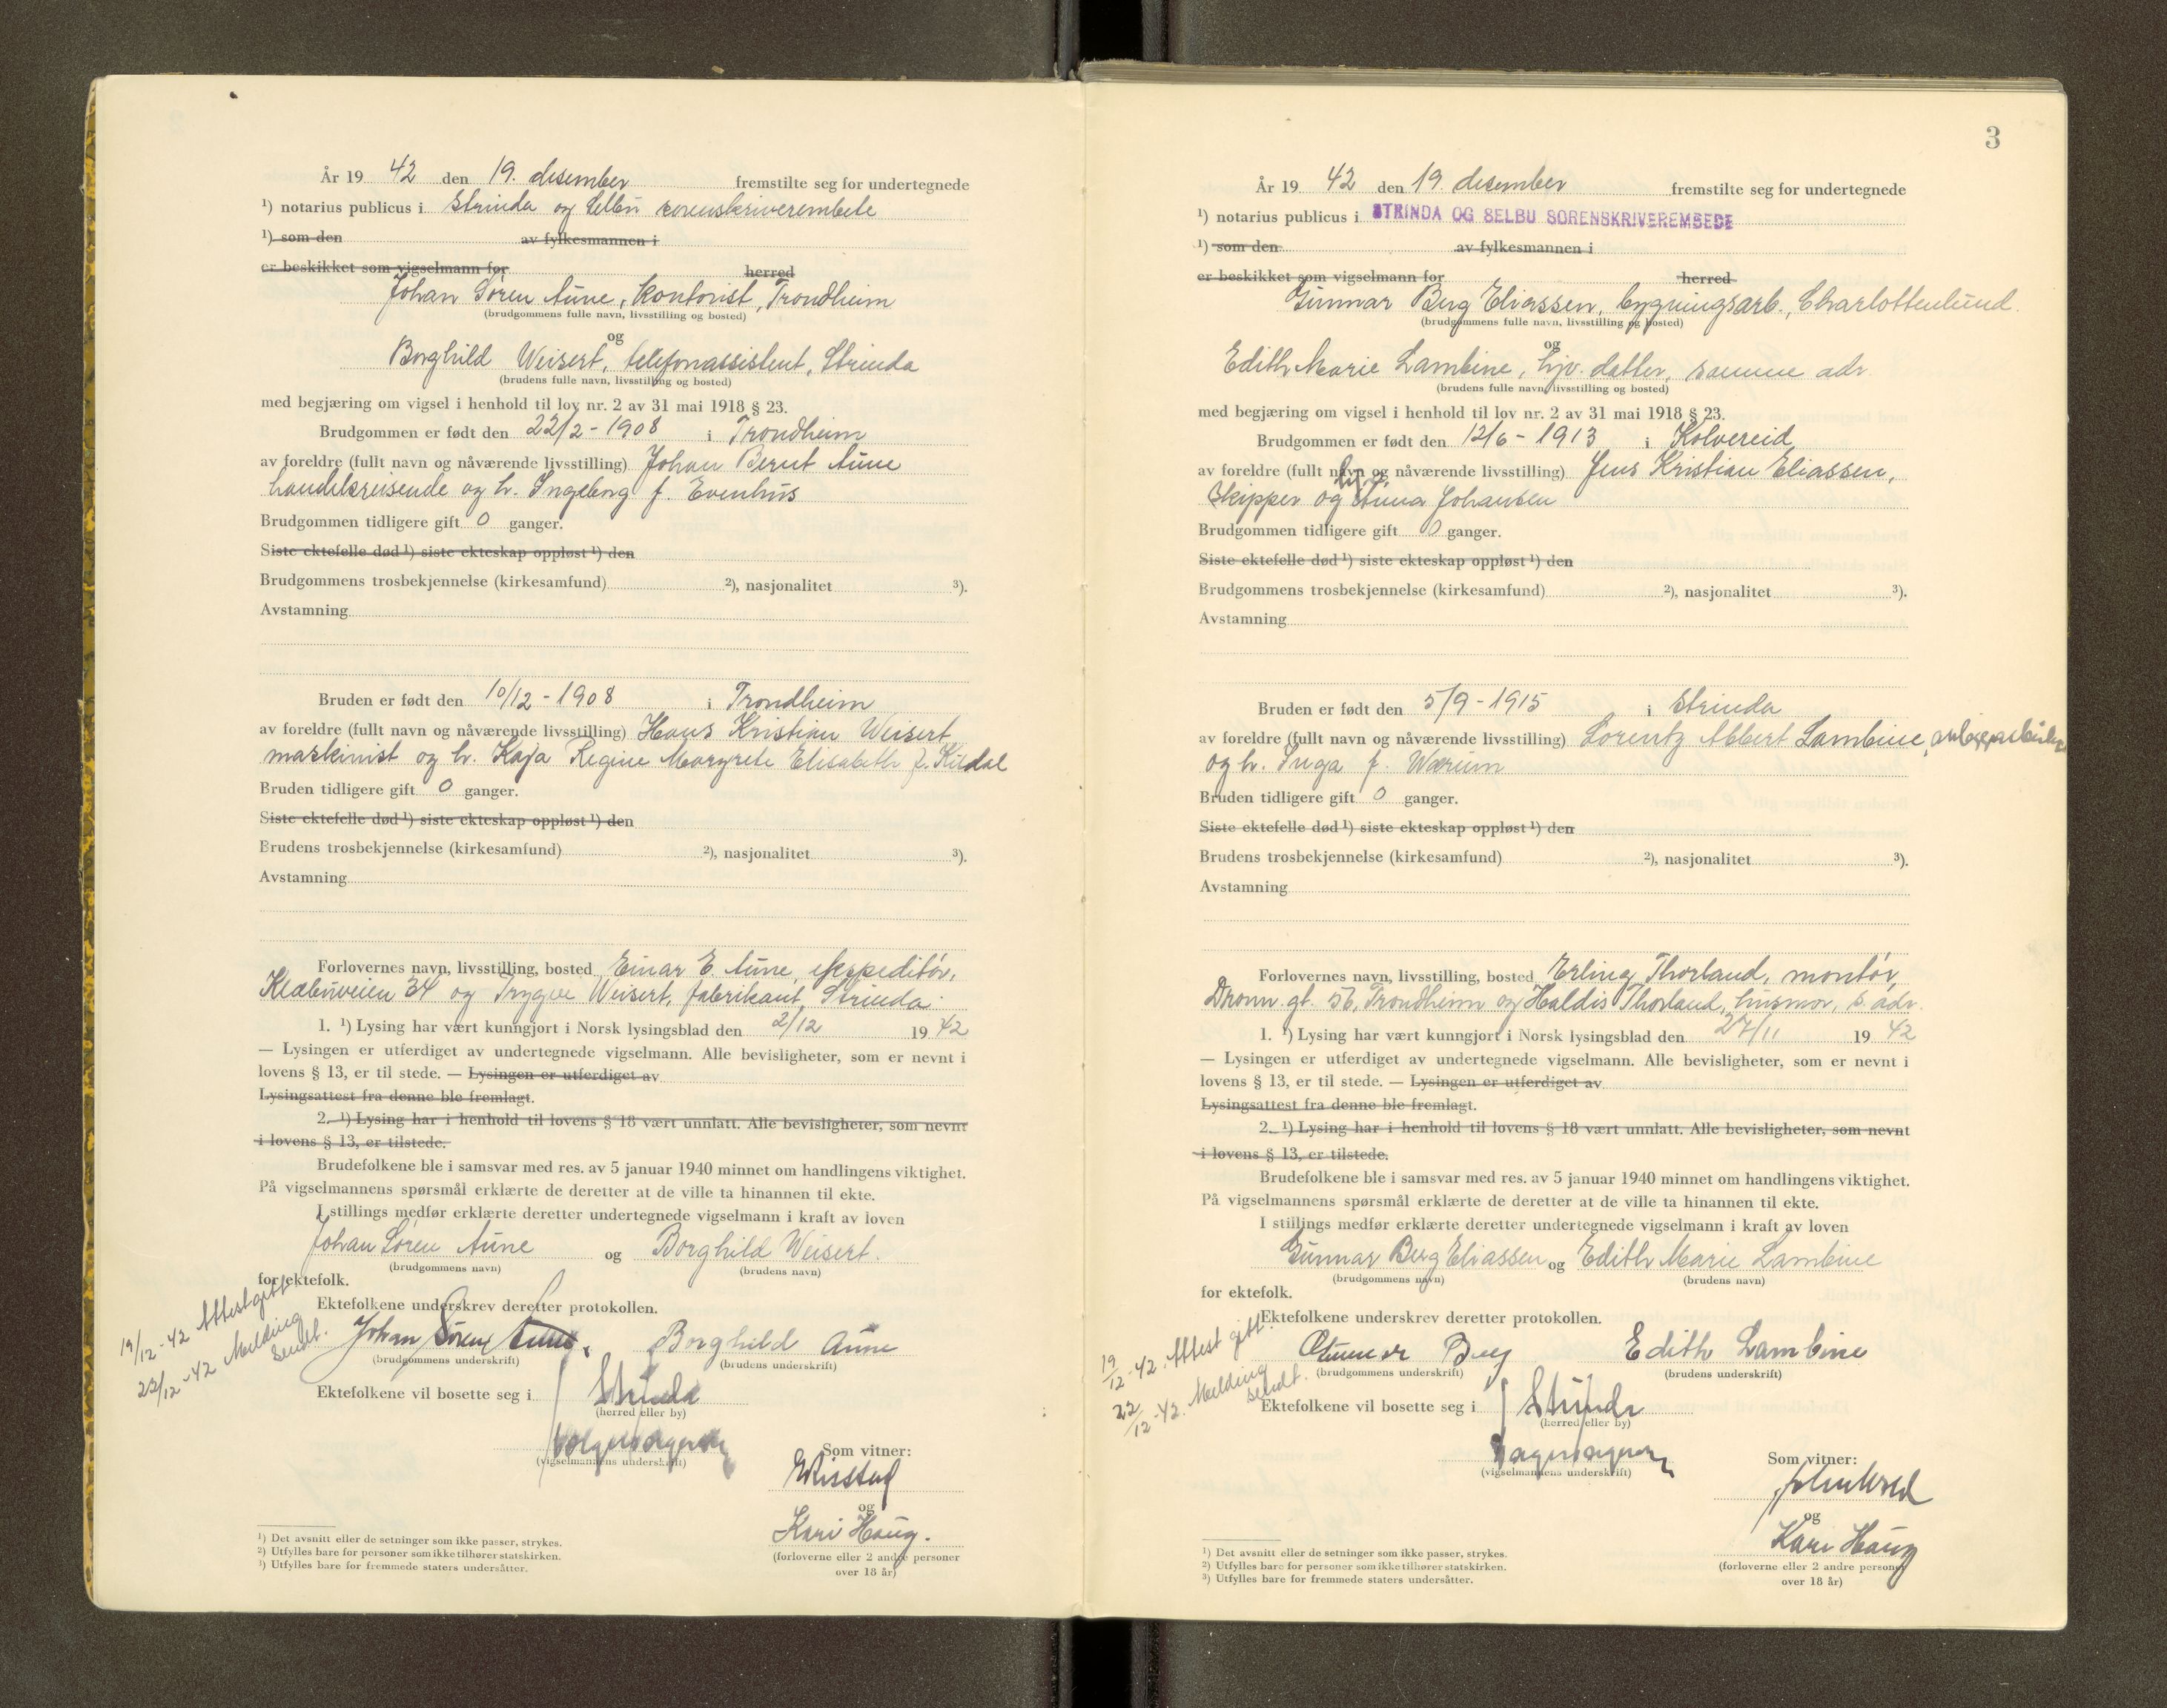 År 19 42 den 19. desember fremstilte seg for undertegnede
¹) notarius publicus i Strinda og Selbu sorenskriverembete
¹) som den av fylkesmannen i
er beskikket som vigselmann for herred
Johan Sören Aune, kontorist, Trondheim
(brudgommens fulle navn, livsstilling og bosted)
og
Borghild Weisert, telefonassistent, Strinda
(brudens fulle navn, livsstilling og bosted)
med begjæring om vigsel i henhold til lov nr. 2 av 31 mai 1918 § 23.
Brudgommen er født den 22/2 - 1908 i Trondheim
av foreldre (fullt navn og nåværende livsstilling) Johan Bernt Aune
handelsreisende og h. Ingeborg f. Evenhus
Brudgommen tidligere gift 0 ganger.
Siste ektefelle død ¹) siste ekteskap oppløst ¹) den
Brudgommens trosbekjennelse (kirkesamfund) ²), nasjonalitet ³).
Avstamning
Bruden er født den 10/12 - 1908 i Trondheim
av foreldre (fullt navn og nåværende livsstilling) Hans Kristian Weisert
maskinist og h. Kaja Regine Margrete Elisabeth f. Kildal
Bruden tidligere gift 0 ganger.
Siste ektefelle død ¹) siste ekteskap oppløst ¹) den
Brudens trosbekjennelse (kirkesamfund) ²), nasjonalitet ³).
Avstamning
Forlovernes navn, livsstilling, bosted Einar E. Aune, ekspeditör,
Klæbuveien 34 og Trygve Weisert, fabrikant, Strinda.
1. ¹) Lysing har vært kunngjort i Norsk lysingsblad den 2/12 19 42
— Lysingen er utferdiget av undertegnede vigselmann. Alle bevisligheter, som er nevnt i
lovens § 13, er til stede. — Lysingen er utferdiget av
Lysingsattest fra denne ble fremlagt.
2. ¹) Lysing har i henhold til lovens § 18 vært unnlatt. Alle bevisligheter, som nevnt
i lovens § 13, er tilstede.
Brudefolkene ble i samsvar med res. av 5 januar 1940 minnet om handlingens viktighet.
På vigselmannens spørsmål erklærte de deretter at de ville ta hinannen til ekte.
I stillings medfør erklærte deretter undertegnede vigselmann i kraft av loven
Johan Sören Aune og Borghild Weisert.
(brudgommens navn) (brudens navn)
for ektefolk.
Ektefolkene underskrev deretter protokollen.
19/12 - 42 Attest gitt
22/12 - 42 Melding
sendt.
Johan Sören Aune. Borghild Aune
(brudgommens underskrift) (brudens underskrift)
Ektefolkene vil bosette seg i Strinda
(herred eller by)
(vigselmannens underskrift)
Som vitner:
og
Kari Haug.
(forloverne eller 2 andre personer
over 18 år)
¹) Det avsnitt eller de setninger som ikke passer, strykes.
²) Utfylles bare for personer som ikke tilhører statskirken.
³) Utfylles bare for fremmede staters undersåtter.
3
År 19 42 den 19. desember fremstilte seg for undertegnede
¹) notarius publicus i STRINDA OG SELBU SORENSKRIVEREMBEDE
¹) som den av fylkesmannen i
er beskikket som vigselmann for herred
Gunnar Berg Eliassen, bygningsarb., Charlottenlund.
(brudgommens fulle navn, livsstilling og bosted)
og
Edith Marie Lambine, hjv. datter, samme adr
(brudens fulle navn, livsstilling og bosted)
med begjæring om vigsel i henhold til lov nr. 2 av 31 mai 1918 § 23.
Brudgommen er født den 12/6 - 1913 i Kolvereid
av foreldre (fullt navn og nåværende livsstilling) Jens Kristian Eliassen,
Skipper og Anna Johansen
Brudgommen tidligere gift 0 ganger.
Siste ektefelle død ¹) siste ekteskap oppløst ¹) den
Brudgommens trosbekjennelse (kirkesamfund) ²), nasjonalitet ³).
Avstamning
Bruden er født den 5/9 - 1915 i Strinda
av foreldre (fullt navn og nåværende livsstilling) Lorentz Albert Lambine,
og h. Inga f. Wærum
Bruden tidligere gift 0 ganger.
Siste ektefelle død ¹) siste ekteskap oppløst ¹) den
Brudens trosbekjennelse (kirkesamfund) ²), nasjonalitet ³).
Avstamning
Forlovernes navn, livsstilling, bosted Erling Thorland, montör,
Dronn. gt. 56, Trondheim og Haldis Thorland, husmor, s. adr.
1. ¹) Lysing har vært kunngjort i Norsk lysingsblad den 27/11 19 42
— Lysingen er utferdiget av undertegnede vigselmann. Alle bevisligheter, som er nevnt i
lovens § 13, er til stede. — Lysingen er utferdiget av
Lysingsattest fra denne ble fremlagt.
2. ¹) Lysing har i henhold til lovens § 18 vært unnlatt. Alle bevisligheter, som nevnt
i lovens § 13, er tilstede.
Brudefolkene ble i samsvar med res. av 5 januar 1940 minnet om handlingens viktighet.
På vigselmannens spørsmål erklærte de deretter at de ville ta hinannen til ekte.
I stillings medfør erklærte deretter undertegnede vigselmann i kraft av loven
Gunnar Berg Eliassen og Edith Marie Lambine
(brudgommens navn) (brudens navn)
for ektefolk.
Ektefolkene underskrev deretter protokollen.
19/12 - 42. Attest gitt.
22/12 - 42. Melding
sendt.
Gunnar Berg Edith Lambine
(brudgommens underskrift) (brudens underskrift)
Ektefolkene vil bosette seg i Strinda
(herred eller by)
(vigselmannens underskrift)
Som vitner:
og
Kari Haug
(forloverne eller 2 andre personer
over 18 år)
¹) Det avsnitt eller de setninger som ikke passer, strykes.
²) Utfylles bare for personer som ikke tilhører statskirken.
³) Utfylles bare for fremmede staters undersåtter.